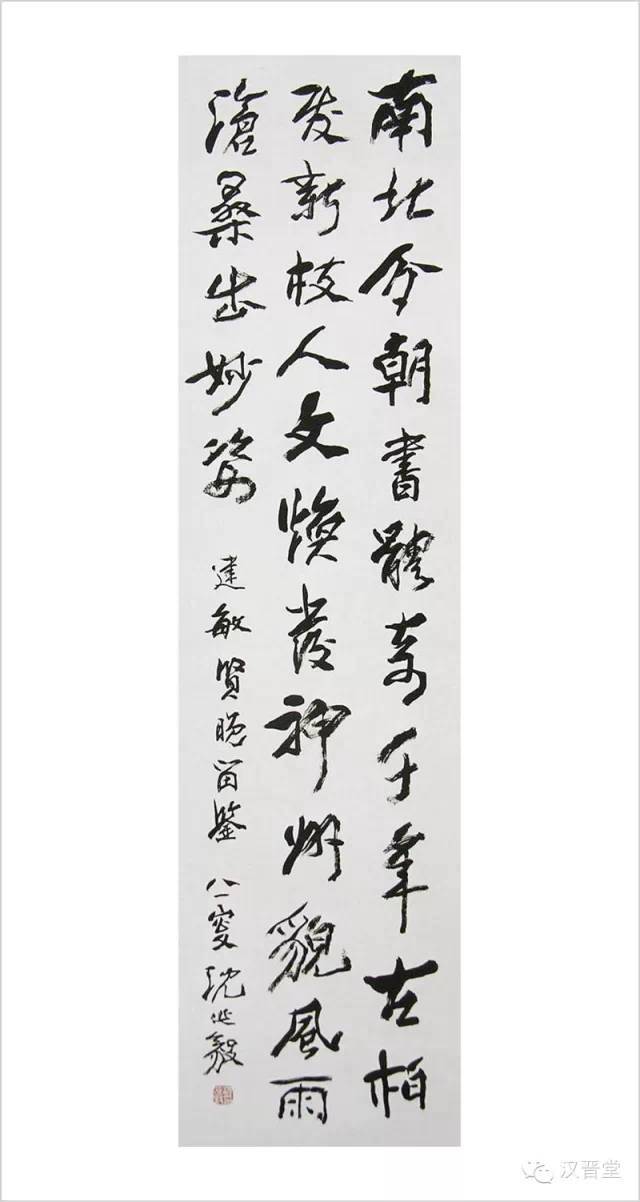 南北分朝書體奇千年古柏
發新枝人文煥發神州貌風雨
滄桑出妙姿 建敏賢晚留鑒 八一叟沈延毅
汉晋堂